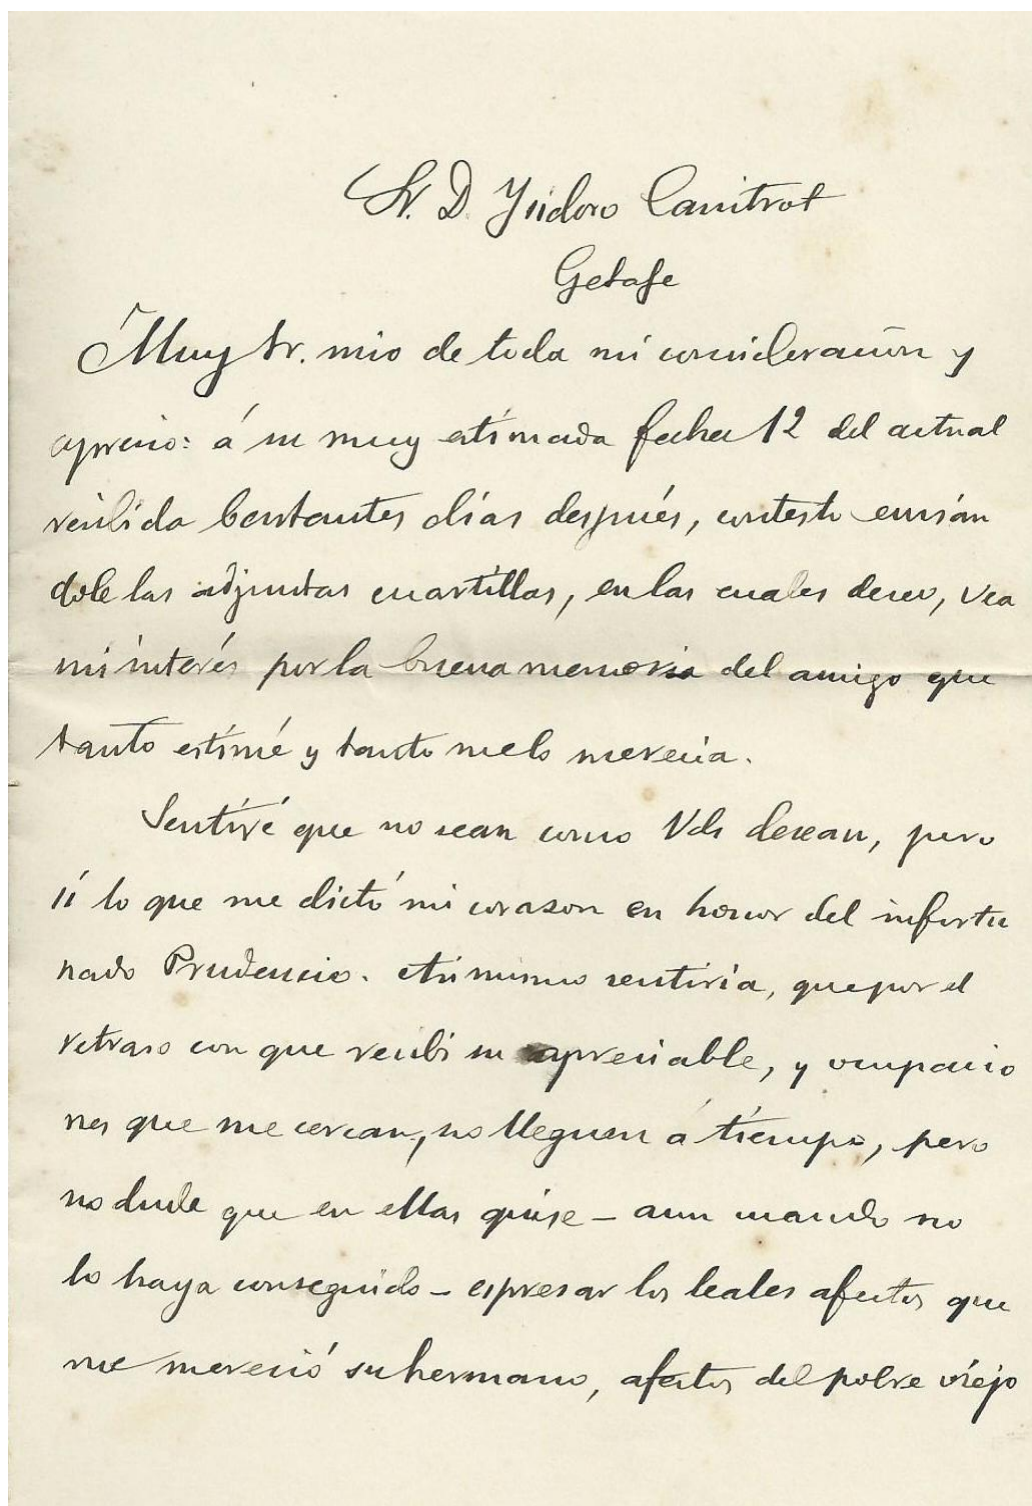 Sr. D. Ysidoro Canitrot
Getafe
Muy Sr. mio de toda mi consideración y
aprecio: á su muy estimada fecha 12 del actual
recibida bastantes días después, contesto envián
dole las adjuntas cuartillas, en las cuales deseo, vea
mi interés por la buena memoria del amigo que
tanto estimé y tanto melo merecia.
Sentiré que no sean como Vds desean, pero
sí lo que me dictó mi corazon en honor del infortu
nado Prudencio. Asimismo sentiria, que por el
retraso con que recibi su apreciable, y ocupacio
nes que me cercan, no lleguen á tiempo, pero
no dude que en ellas quise – aun cuando no
lo haya conseguido – espresar los leales afectos que
me mereció su hermano, afectos del pobre viejo